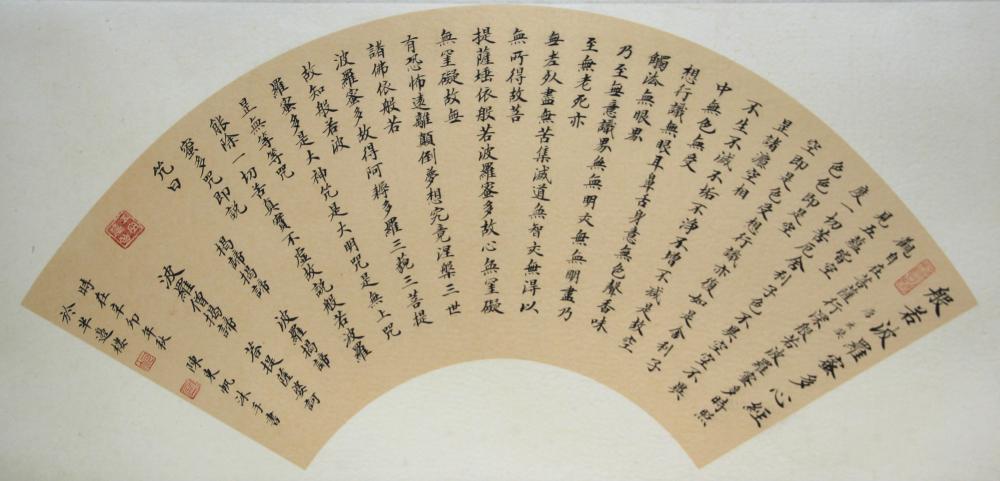 般若波羅蜜多心經
觀自在菩薩行深般若波羅蜜多時照
見五蘊皆空
度一切苦厄舍利子色不異空空不異
色色即是空
空即是色受想行識亦復如是舍利子
是諸法空相
不生不滅不垢不淨不增不減是故空
中無色無受
想行識無眼耳鼻舌身意無色聲香味
觸法無眼界
乃至無意識界無無明亦無無明盡乃
至無老死亦
無老死盡無苦集滅道無智亦無得以
無所得故菩
提薩埵依般若波羅蜜多故心無罣礙
無罣礙故無
有恐怖遠離顛倒夢想究竟涅槃三世
諸佛依般若
波羅蜜多故得阿耨多羅三藐三菩提
故知般若波
羅蜜多是大神咒是大明咒是無上咒
是無等等咒
能除一切苦真實不虛故說般若波羅
蜜多咒即說
咒曰 揭諦揭諦 波羅揭諦
波羅僧揭諦 菩提薩婆訶
時在辛卯年秋 陳東帆沐手書
於半邊樓